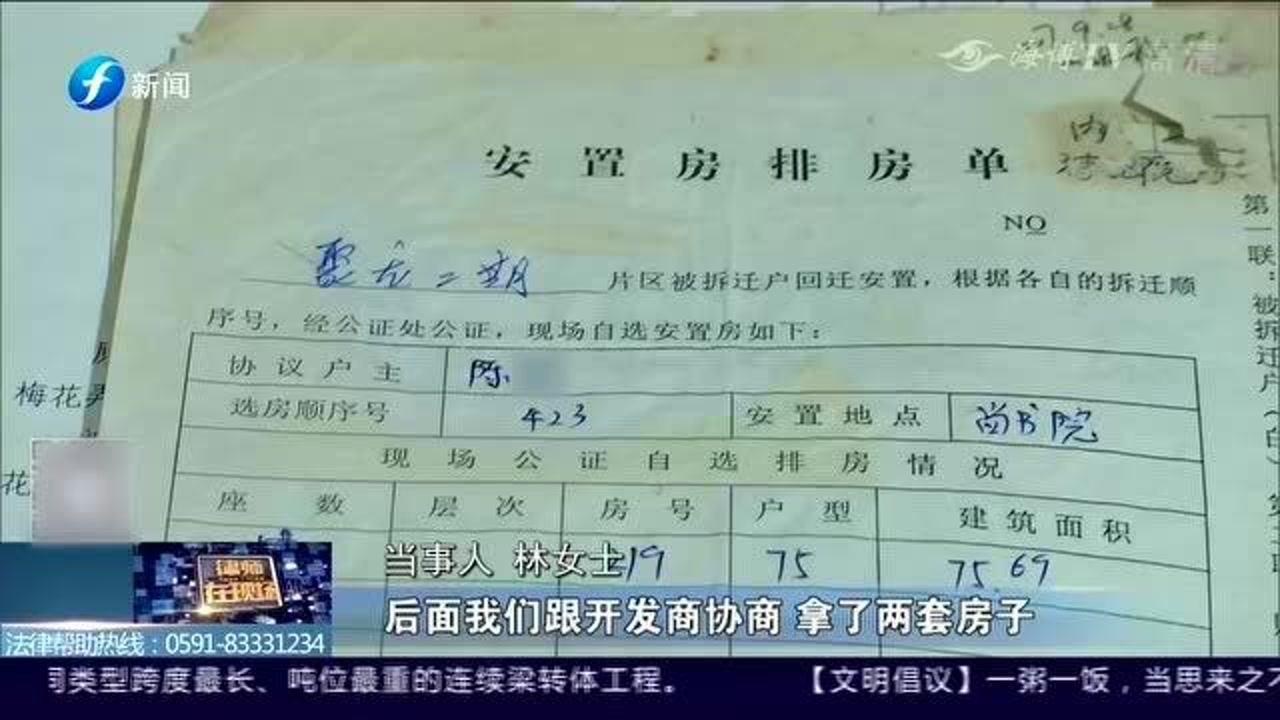 新闻
海博TV 高清
安置房排房单
NO
聚龙二期 片区被拆迁户回迁安置，根据各自的拆迁顺
序号，经公证处公证，现场自选安置房如下：
协议户主 陈
选房顺序号 423 安置地点 尚书院
现场公证自选排房情况
座数 层次 房号 户型 建筑面积
19 75 75.69
第一联：被拆迁户
梅花
花
律师在现场
当事人 林女士
后面我们跟开发商协商 拿了两套房子
法律帮助热线：0591-83331234
同类型跨度最长、吨位最重的连续梁转体工程。 【文明倡议】一粥一饭，当思来之不